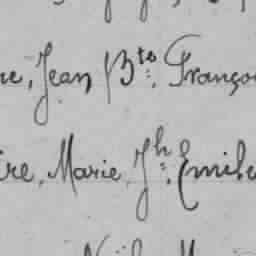 re, Jean Bte. Franço
ire, Marie, Jh. Emile